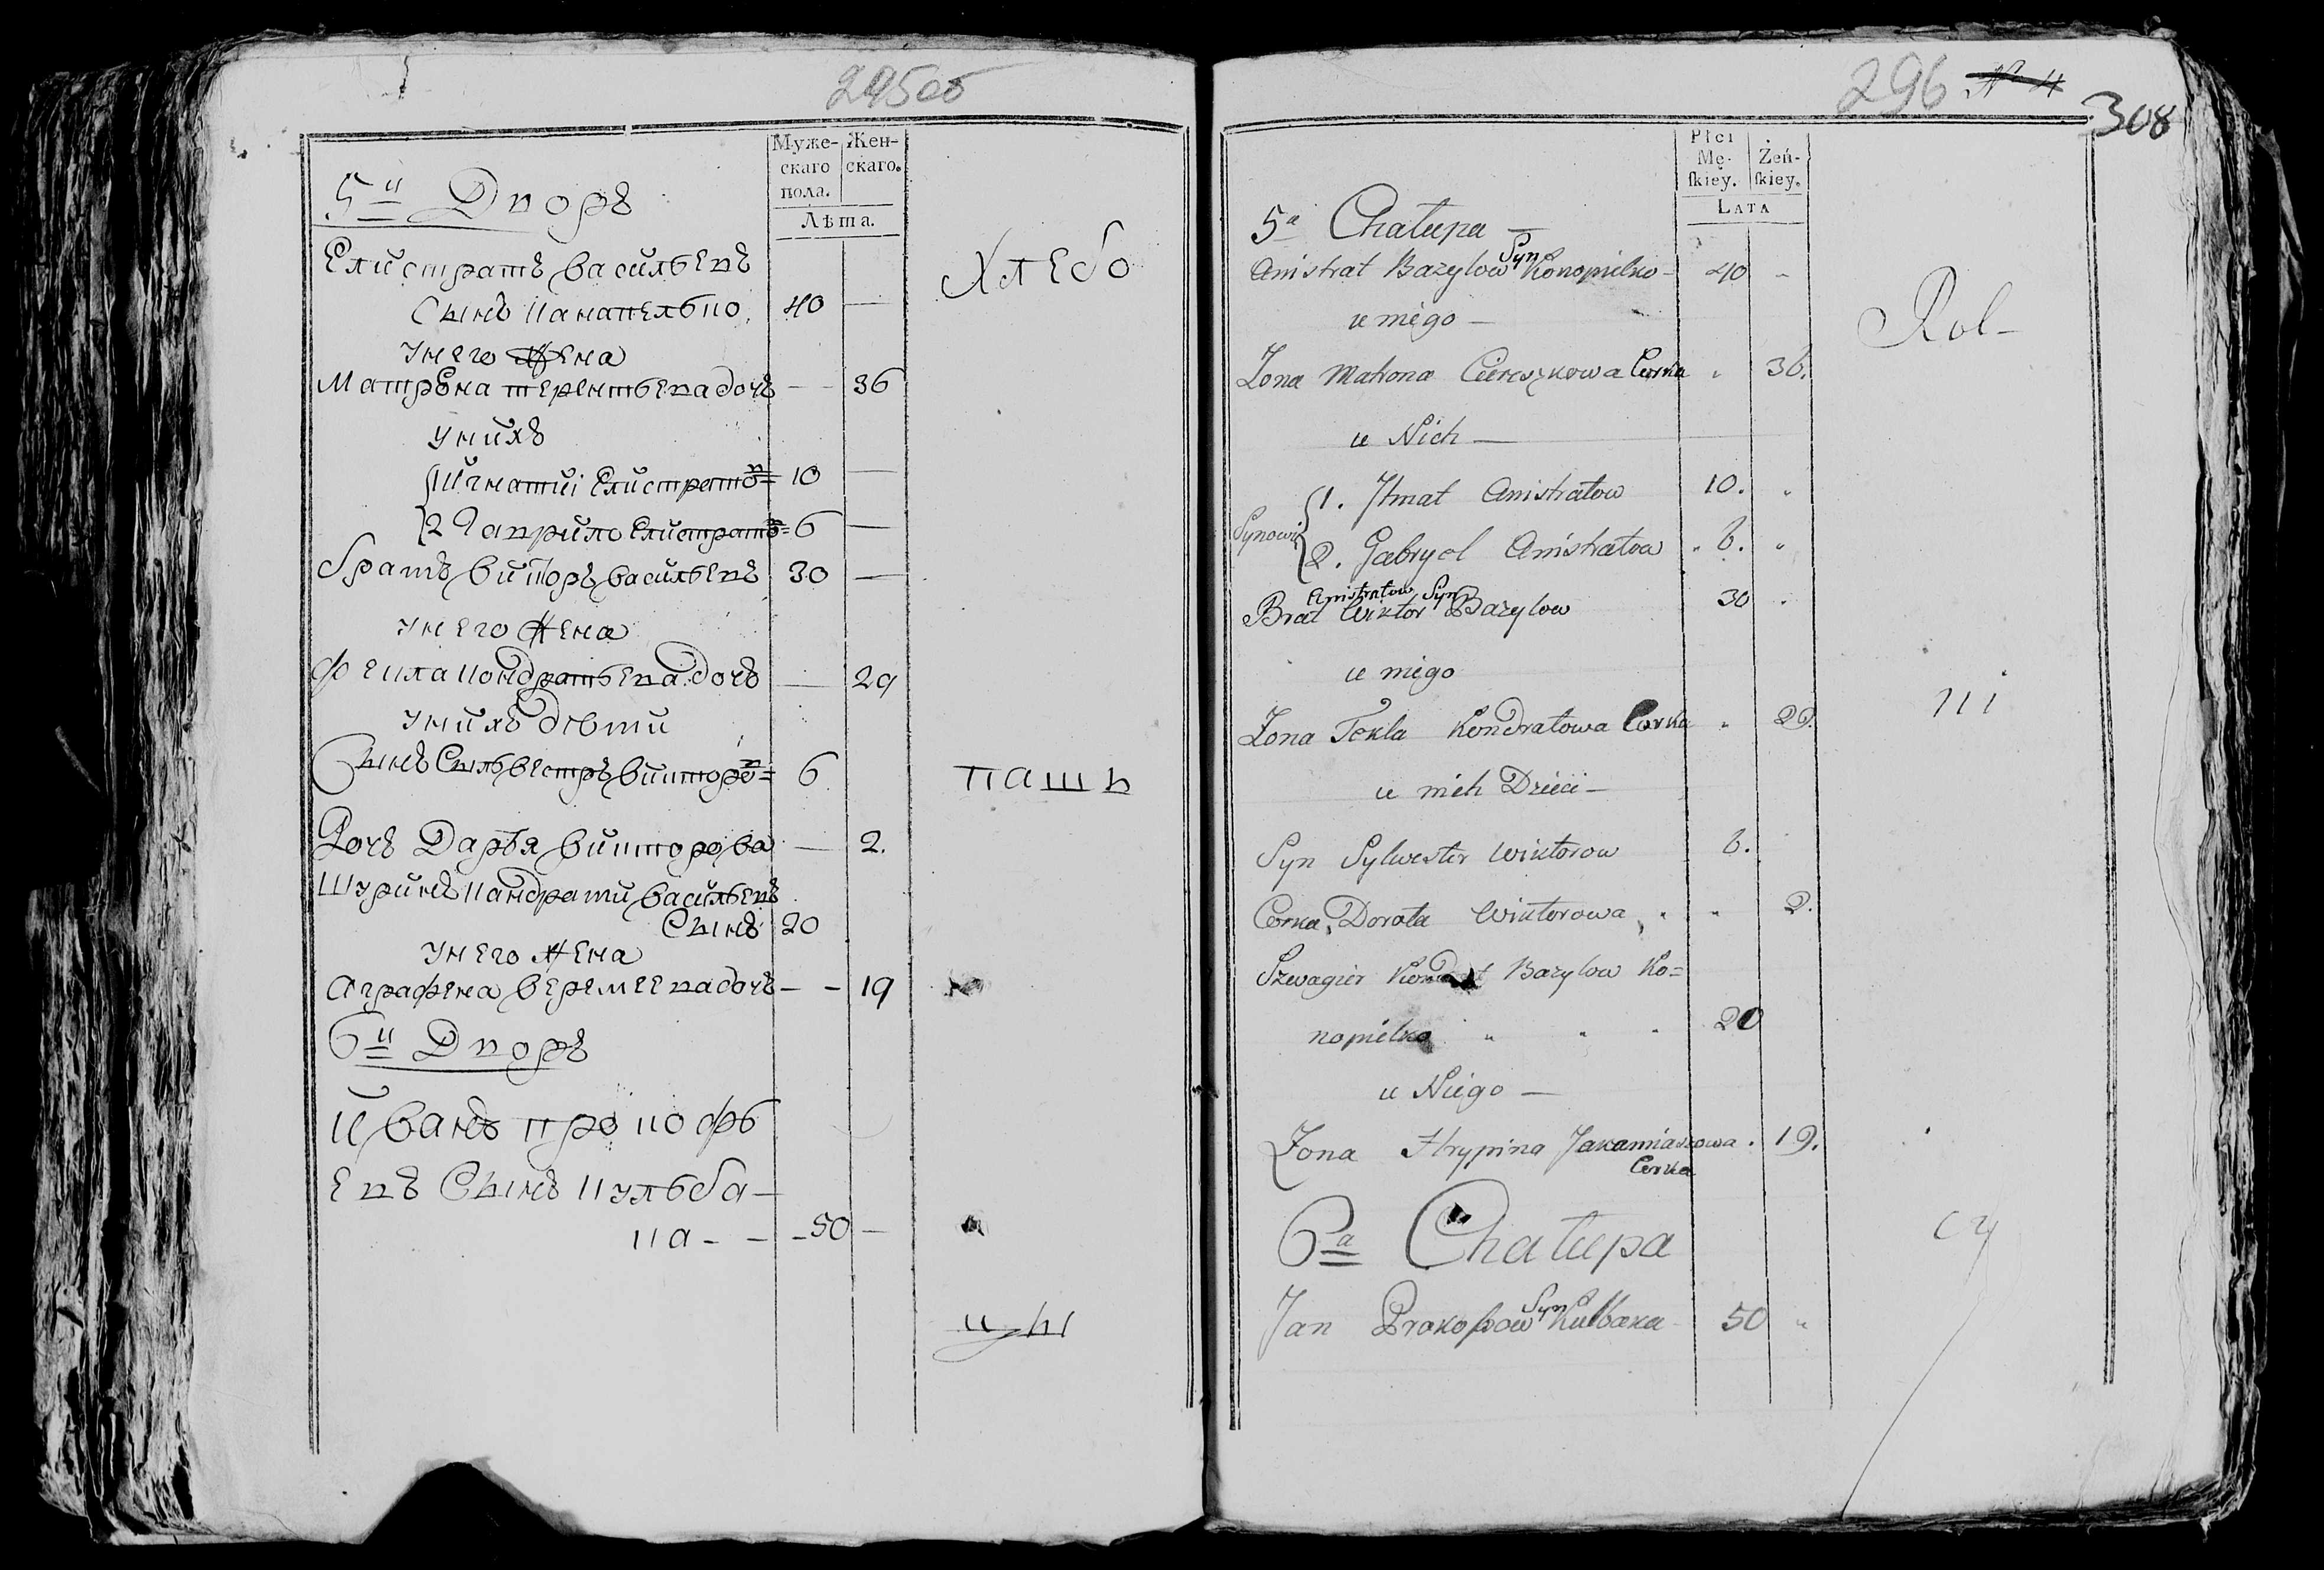 295об
Муже-
скаго
пола.
Жен-
скаго.
Лѣта.
5й Дворъ
Елистратъ васильевъ
Хлебо
Сынъ Канапелько 40 —
унего жена
Матрѣна терентьева дочь — — 36
унихъ
1 Игнатиі Елистратов= 10 —
2 Гаврило Елистратов= 6 —
братъ викторъ васильевъ 30 —
унего жена
Фекла кондратьева дочь — 29
унихъ дѣти
Сынъ Сильвестръ викторов= 6
пашъ
Дочь Дарья викторова — 2.
Шуринъ кандрати васильевъ
Сынъ 20
унего жена
аграфена веремеева дочь — - 19
6й Дворъ
Иванъ прокофь
евъ Сынъ кульба —
ка - — - 50 —
цы
296 N 4
308
Płci
Mę-
ſkiey.
Żeń-
ſkiey.
LATA
5a Chałupa
Anistrat Bazylow Syn Konopielko - 40 "
Rol-
u niego —
Zona Matrona Ciereszkowa Corka " 36.
u Nich —
Synowie
1. Ihnat Anistratow 10. "
2. Gabryel Anistratow " 6. "
Anistratow Syn
Brat Wiktor Bazylow 30 "
u niego
ni
Zona Tekla Kondratowa Corka " 29.
u nich Dzieci —
Syn Sylwester Wiktorow 6.
Corka Dorota Wiktorowa " " 2.
Szwagier Kondrat Bazylow Ko=
nopielko " " " 20
u Niego —
Zona Hrypina Jakamiaskowa . 19.
Corka
cy
6a Chałupa
Jan Prokopow Syn Kulbaka 50 "